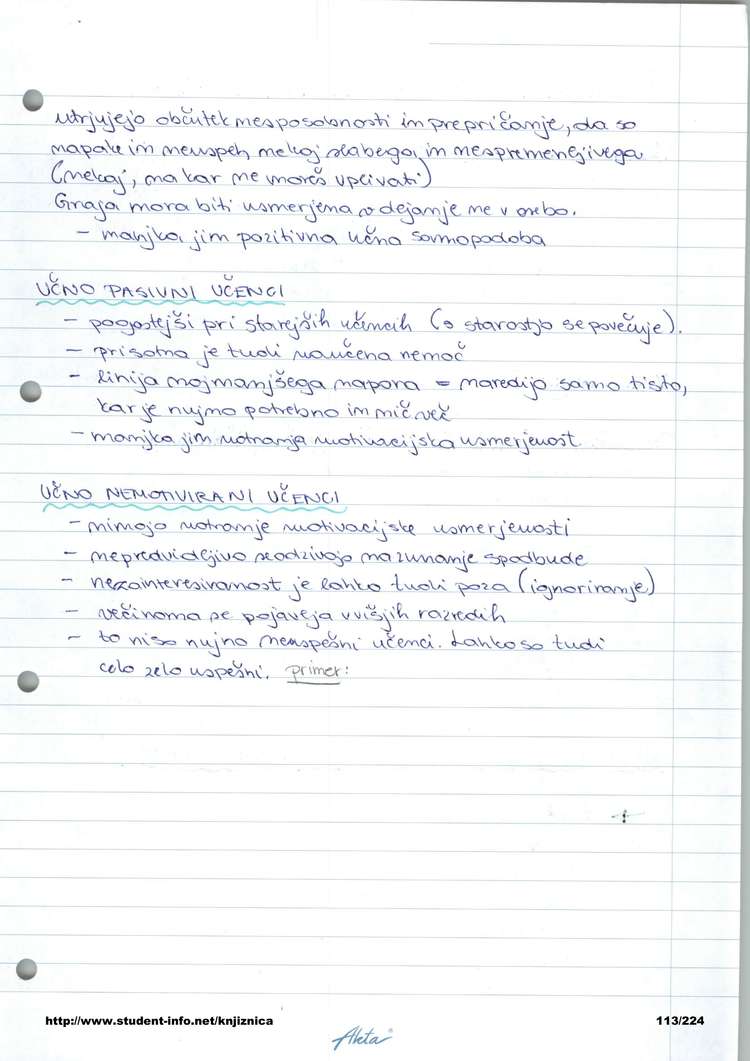 utrjujejo občutek nesposobnosti in prepričanje, da so
napake in neuspeh nekaj slabega in nespremenljivega
(nekaj, na kar ne moreš vplivati)
Graja mora biti usmerjena v dejanje ne v osebo.
- manjka jim pozitivna učna samopodoba
UČNO PASIVNI UČENCI
- pogostejši pri starejših učencih (s starostjo se povečuje).
- prisotna je tudi naučena nemoč
- linija najmanjšega napora = naredijo samo tisto,
kar je nujno potrebno in nič več
- manjka jim notranja motivacijska usmerjenost
UČNO NEMOTIVIRANI UČENCI
- nimajo notranje motivacijske usmerjenosti
- nepredvidljivo se odzivajo na zunanje spodbude
- nezainteresiranost je lahko tudi poza (ignoriranje)
- večinoma se pojavlja v višjih razredih
- to niso nujno neuspešni učenci. Lahko so tudi
celo zelo uspešni. primer:
http://www.student-info.net/knjiznica 113/224
Akta